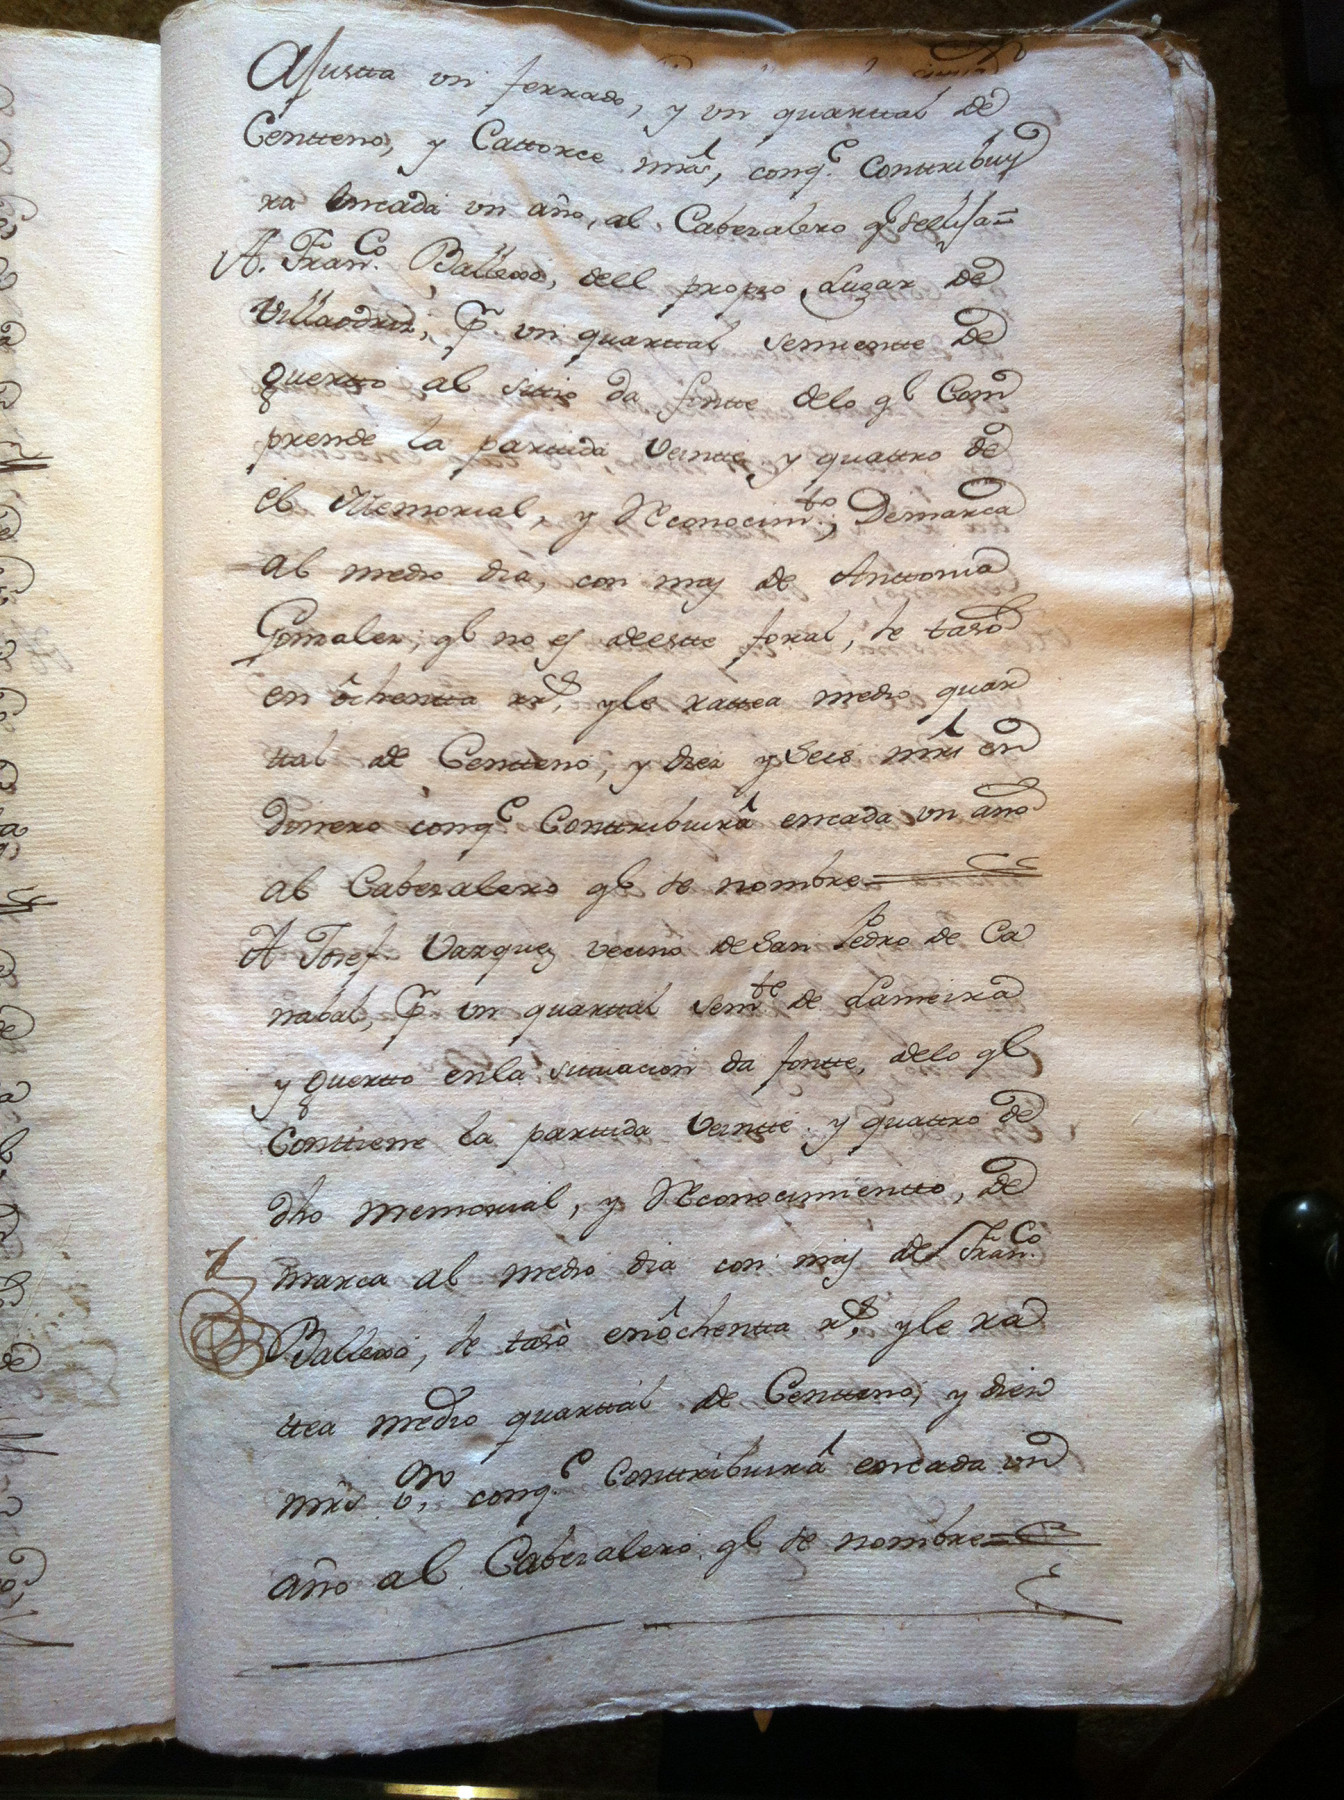 Ajustta vn ferrado, y vn quarttal de
Centteno, y Cattorce mrs, conq.e Conttribuy
ra encada vn año, al Cabezalero ql
A. Fran.co Ballexo, dell propio Lugar de
Villaodriz, Pr. vn quarttal semientte de
Guertto al sittio da fontte delo ql Com
prende la parttida Veintte y quattro de
el Memorial, y Reconocim.to, Demarca
al medio dia, con mas de Anttonia
Gonzalez, ql no es deestte foral, se tasó
en òchentta rr.s, yle rattea medio quar
ttal de Centteno, y diez y Seis mrs en
dinero conq.e Conttribuirá encada vn año
al Cabezalero ql se nombre =
A Josef Vazquez vecino de San Pedro de Ca
nabal, Pr. vn quarttal sem.te de Lameira
y Guertto enla sittuacion da fontte, delo ql
Conttiene la parttida Veintte y quattro de
dho memorial, y Reconocimientto, de
marca al medio dia con mas de Fran.co
Ballexo, se tasó enòchentta r.s, yle ra
ttea medio quarttal de Centteno, y diez
mrs v.on, conq.e Conttribuirá encada vn
año al Cabezalero ql se nombre =